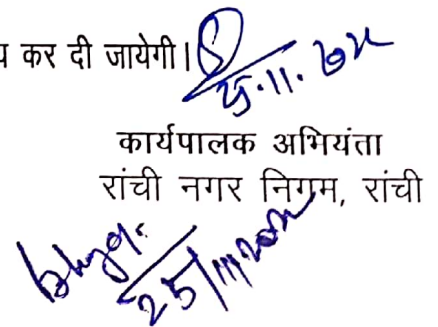 कर दी जायेगी।
25.11.
कार्यपालक अभियंता
रांची नगर निगम, रांची
25/11/202